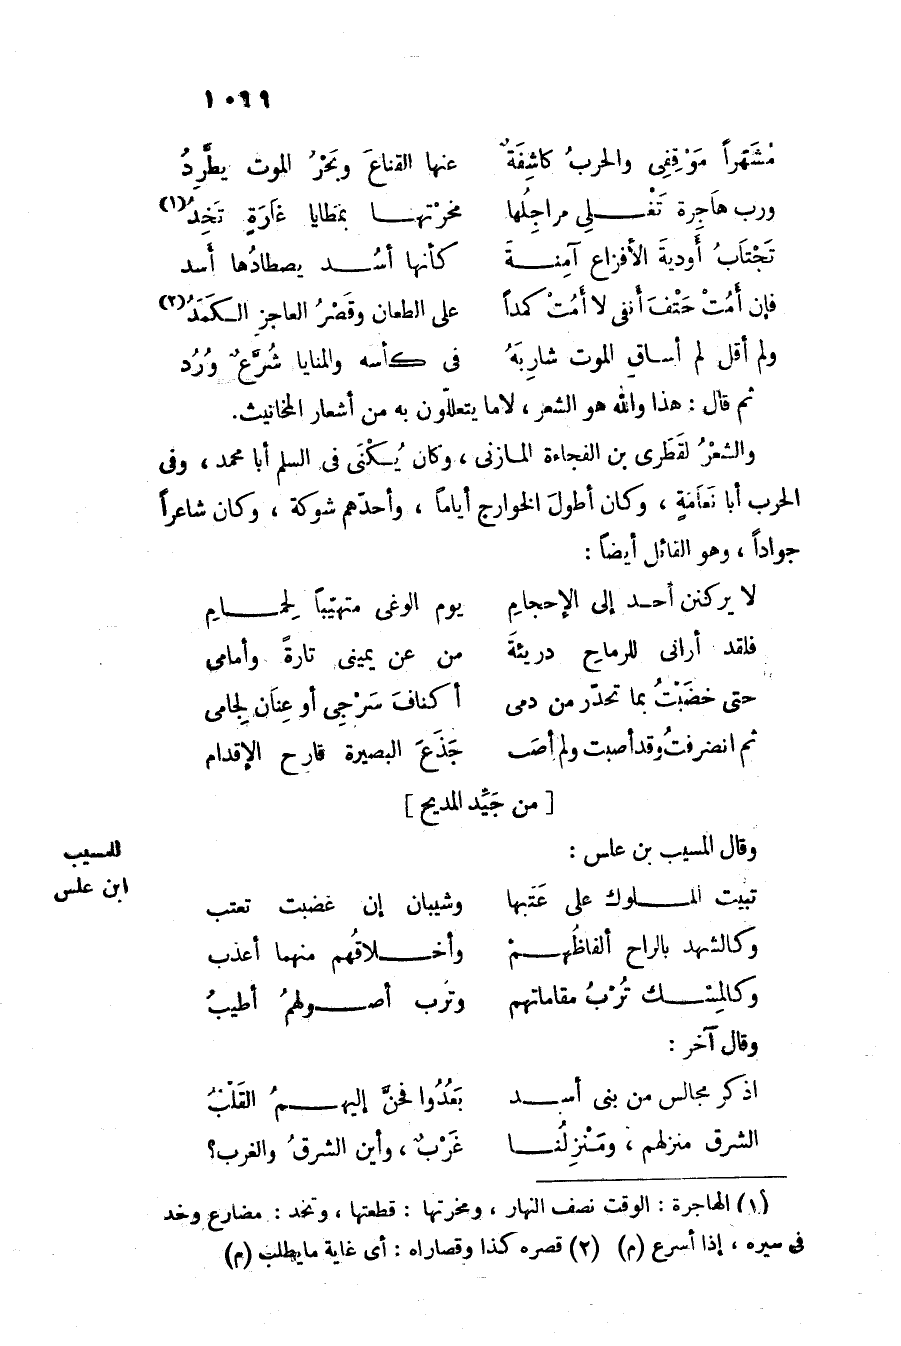 ١٠٩٩
مُشَهَّراً مَوْقِفِى والحربُ كاشِفَةٌ عنها القناعَ وبَحْرُ الموت يطَّرِدُ
ورب هاَجِرة تَغْلِى مراجِلُها مخرْتها بمَطايا غاَرَةٍ تَخِدُ(١)
تَجْتاَبُ أوديةَ الأفزاع آمِنةَ كأنها أسُد يصطادُها أَسد
فإن أَمُتْ حَتْفَ أنفى لا أَمُتْ كمداً على الطعان وقَصْرُ العاجزِ الكَمَدُ(٢)
ولم أقل لم أساقِ الموت شارِبَهُ فى كأسه والمنايا شُرَّعٌ وُرُد
ثم قال : هذا والله هو الشعر ، لاما يتعللّون به من أشعار المخانيث.
والشعْرُ لقَطَرى بن الفجاءة المازنى ، وكان يُكنَى فى السلم أبا محمد ، وفى
الحرب أبا نَعاَمَةٍ ، وكان أطولَ الخوارج أياماً ، وأحدّهم شوكة ، وكان شاعراً
جواداً ، وهو القائل أيضاً :
لا يركنن أحد إلى الإحجامِ يوم الوغى متهيّباً لِحمامِ
فلقد أرانى للرماحِ دريئةَ من عن يمينى تارةً وأمامى
حتى خضَبْتُ بما تحدّر من دمى أكنافَ سَرْجِى أو عِنَان لِجامى
ثم انصرفتُ وقد أصبت ولم أصَب جَذَعَ البصيرة قارح الإقدام
[ من جَيِّد المديح ]
وقال المسيب بن علس :
للمسيب
ابن علس
تبيت الملوك على عَتَبها وشيبان إن غضبت تعتب
وكالشهد بالراح ألفاظُهمْ وأخلاقُهم منهما أعذب
وكالمِسْك تُرْبُ مقاماتهم وتُرب أصولهمُ أطيبُ
وقال آخر :
اذكر مجالس من بنى أسد بَعَدُوا فحنَّ إليهمُ القَلْبُ
الشرق منزلهم ، ومَنْزِلُنا غَرْبٌ ، وأين الشرقُ والغرب؟
(١) الهاجرة : الوقت نصف النهار ، ومخرتها : قطعتها ، وتخد : مضارع وخد
فى سيره ، إذا أسرع (م) (٢) قصره كذا وقصاراه : أى غاية مايطلب (م)